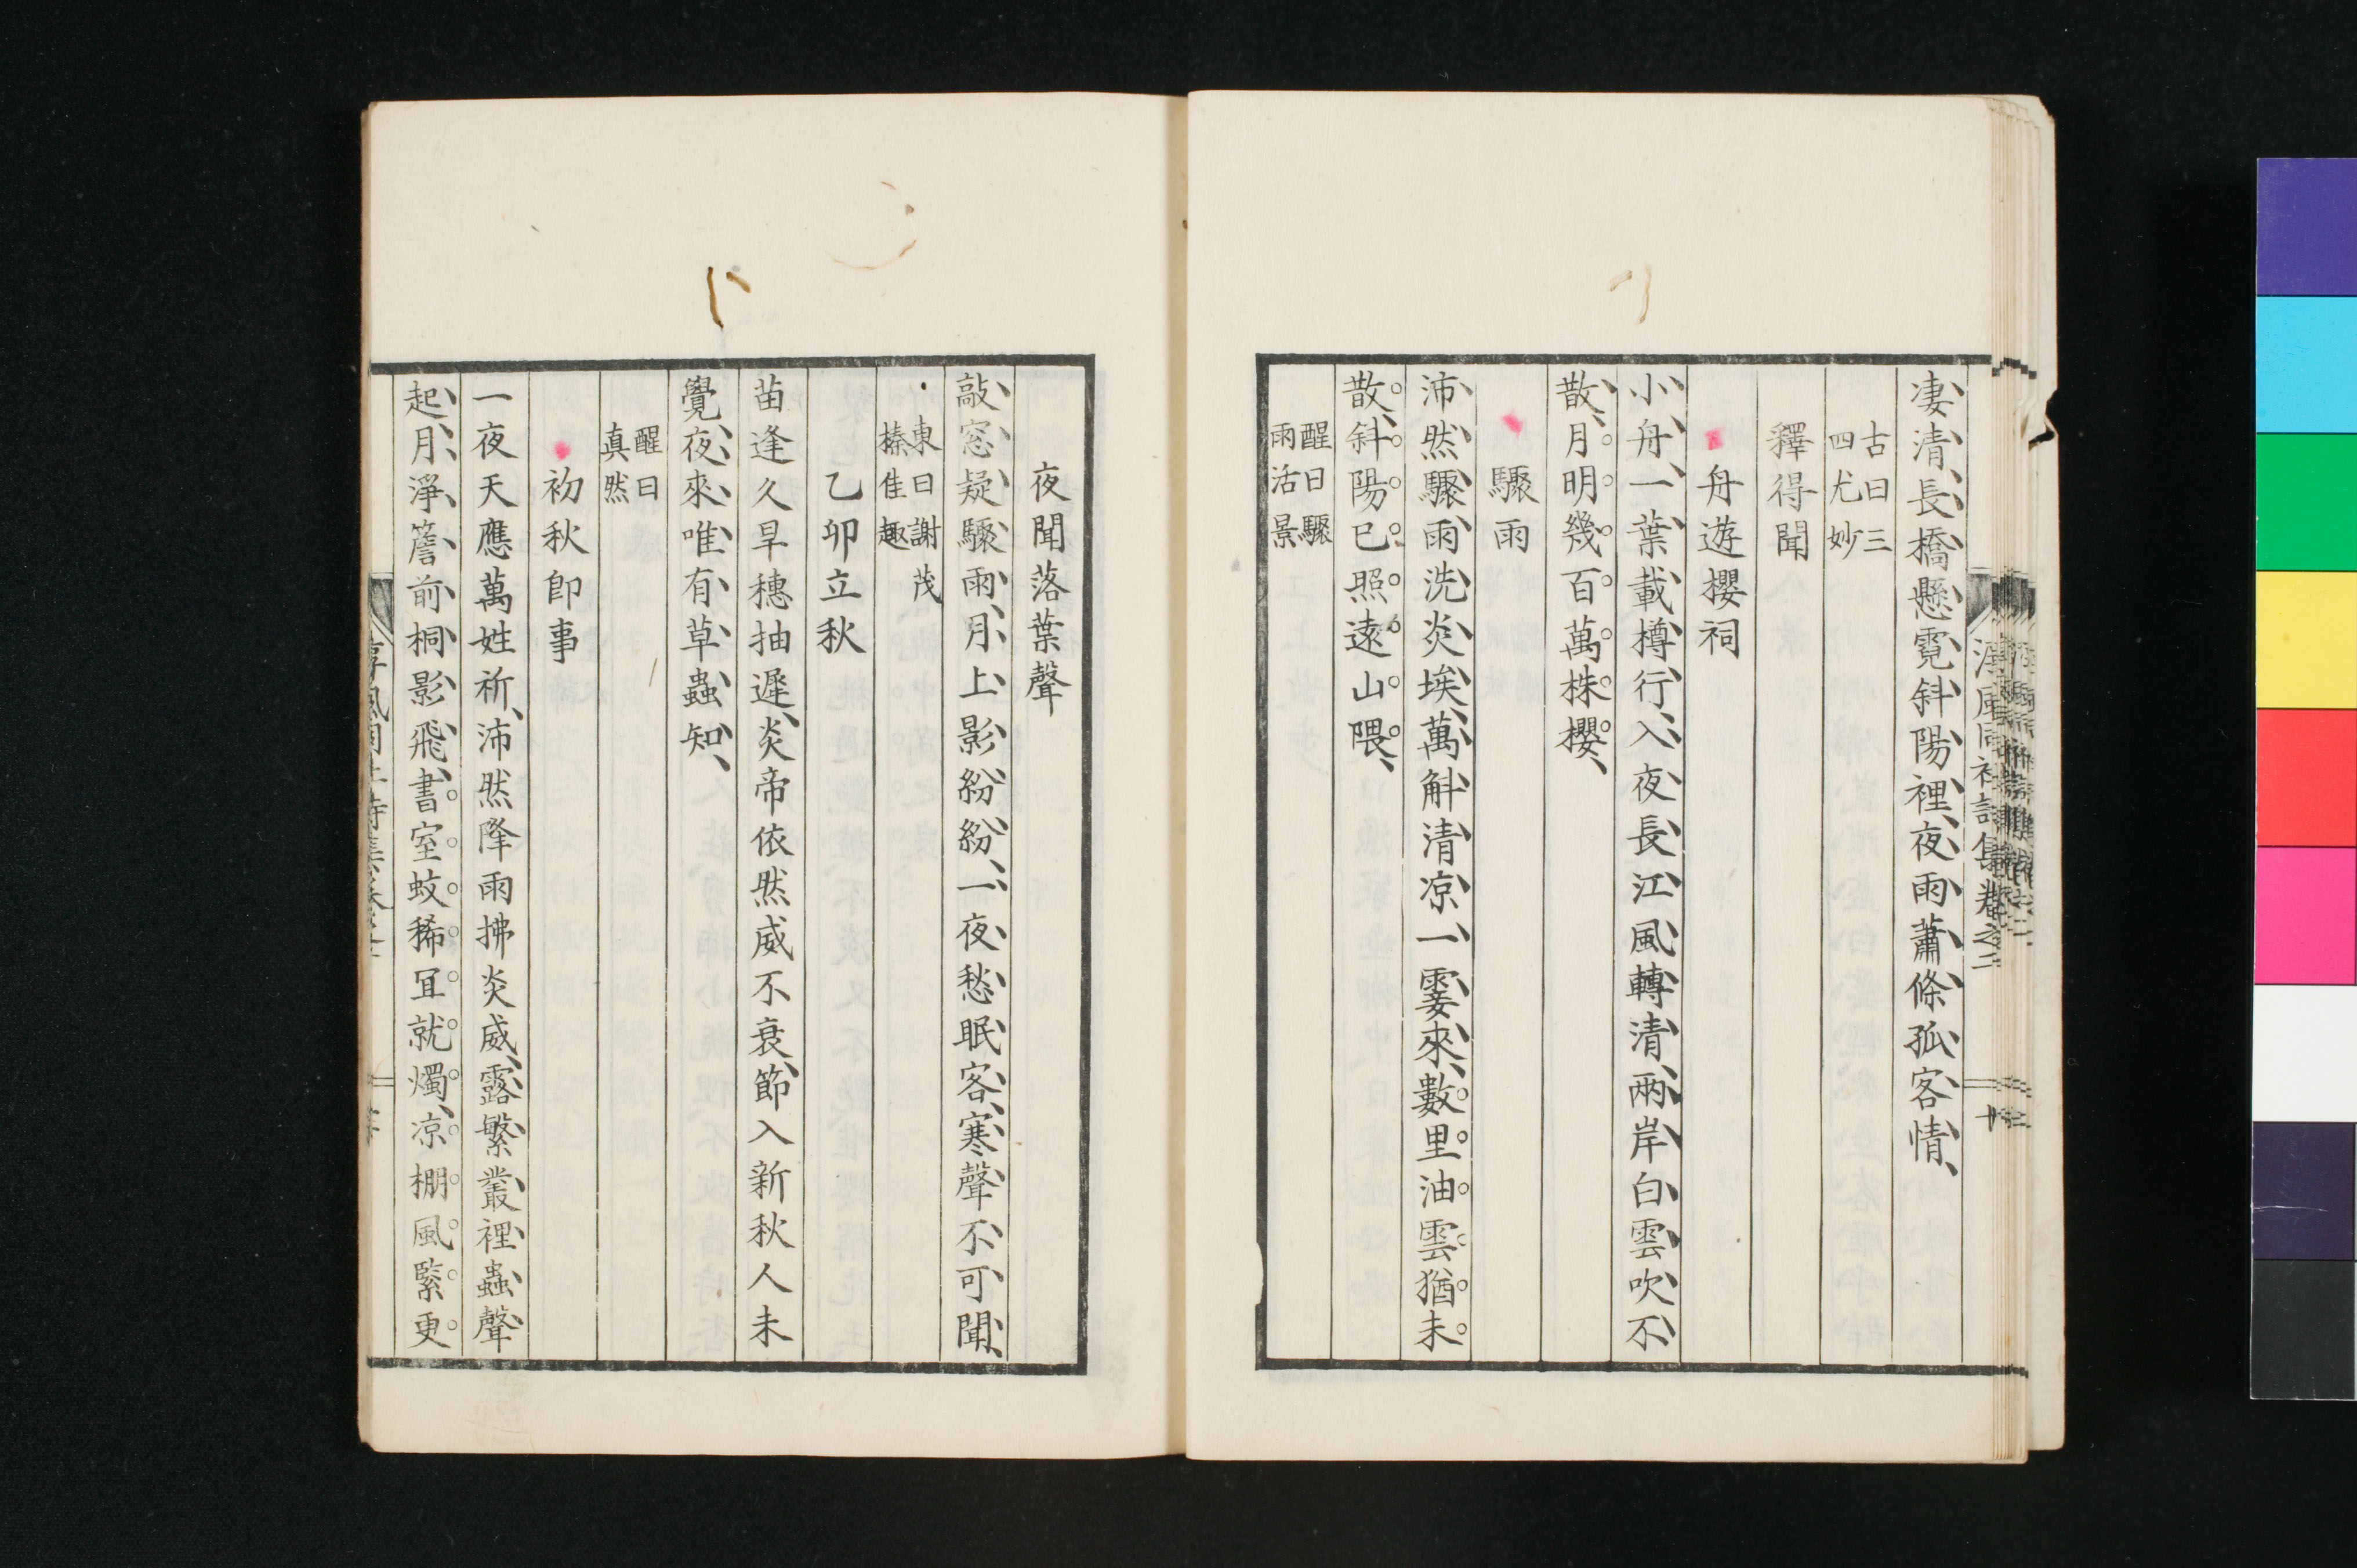 凄清、長橋懸霓斜陽裡、夜雨蕭條孤客情、
古曰三
四尤妙
釋得聞
舟遊櫻祠
小舟一葉載樽行、入夜長江風轉清、兩岸白雲吹不
散、月明幾百萬株櫻、
驟雨
沛然驟雨洗炎埃、萬斛清凉一霎來、數里油雲猶未
散、斜陽已照遠山隈、
醒曰驟
雨活景
夜聞落葉聲
敲窓疑驟雨、月上影紛紛、一夜愁眠客、寒聲不可聞、
東曰謝茂
榛佳趣
乙卯立秋
苗逢久旱穗抽遲、炎帝依然威不衰、節入新秋人未
覺、夜來唯有草蟲知、
醒曰
真然
初秋卽事
一夜天應萬姓祈、沛然降雨拂炎威、露繁叢裡蟲聲
起、月淨簷前桐影飛、書室蚊稀冝就燭、凉棚風緊更